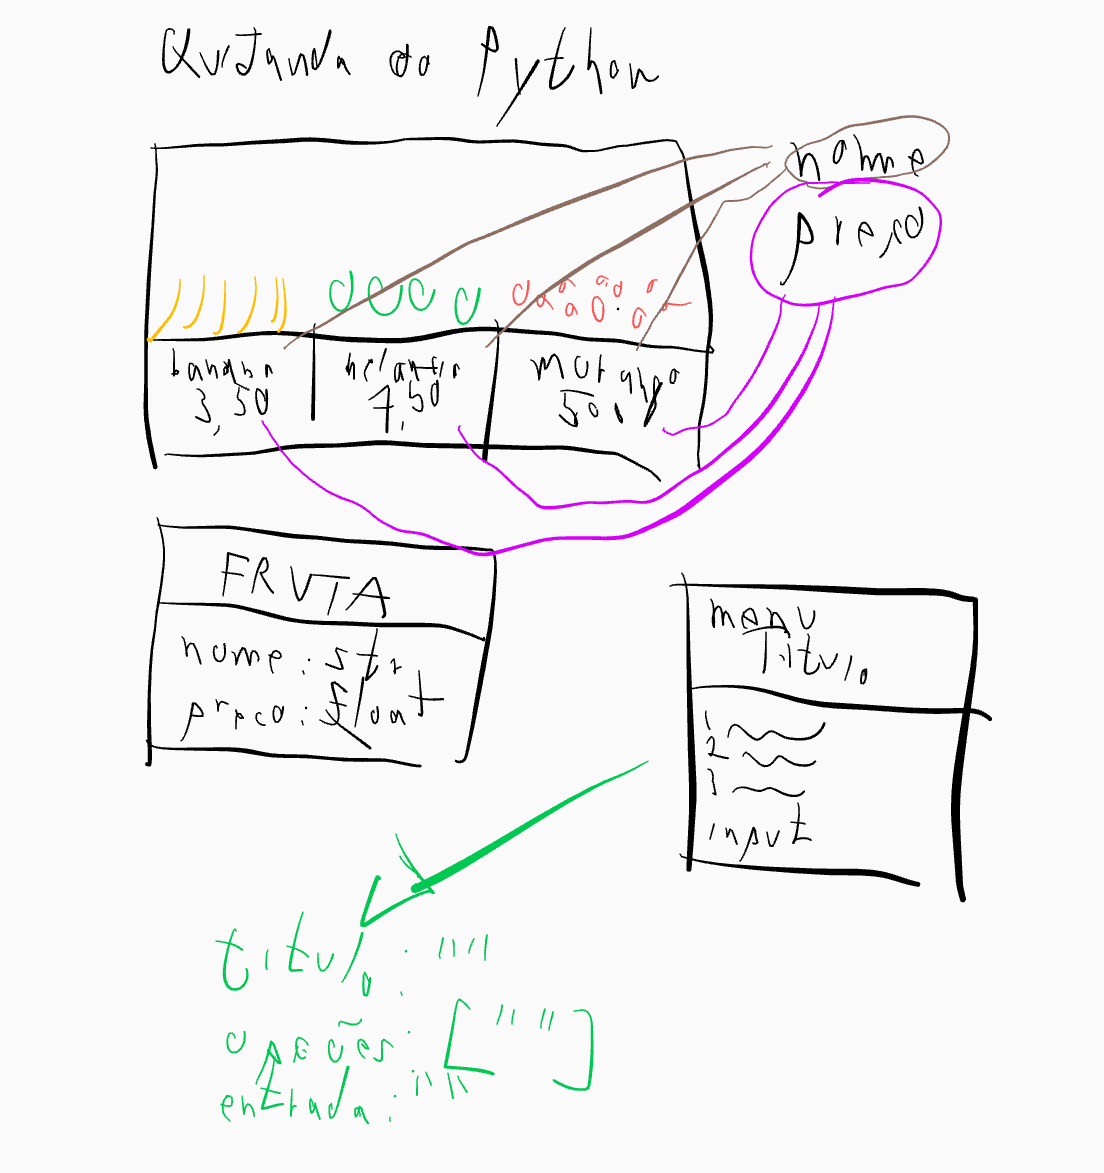 Quitanda do Python
nome
preço
banana
3,50
melancia
7,50
morango
50,
FRUTA
nome: str
preco: float
menu
Titulo
1
2
3
input
titulo: ""
opções: [" "]
entrada: ""